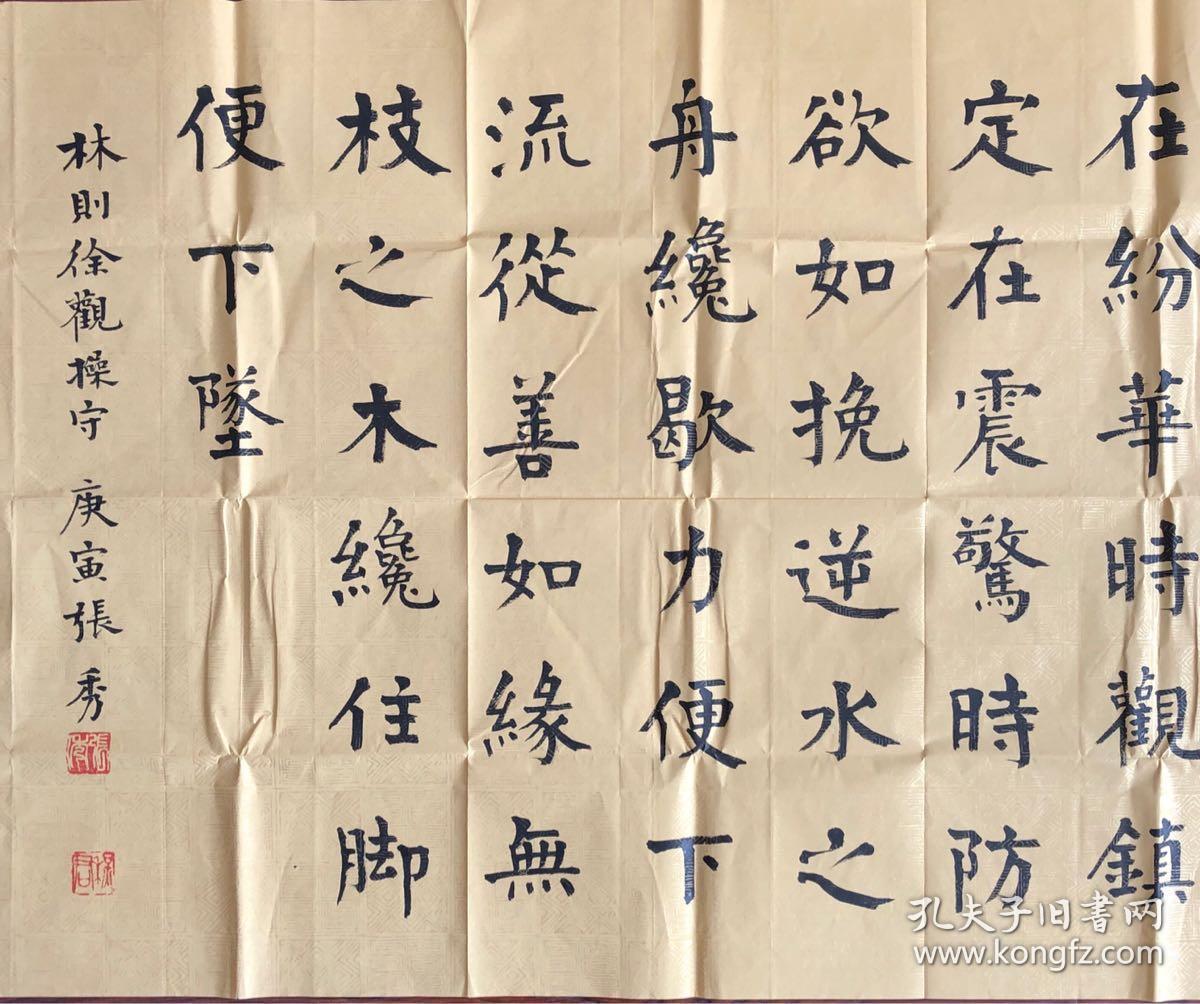 在紛華時觀鎮
定在震驚時防
欲如挽逆水之
舟纔歇力便下
流從善如緣無
枝之木纔住脚
便下墜
林則徐觀操守 庚寅張秀
孔夫子旧書网
www.kongfz.com